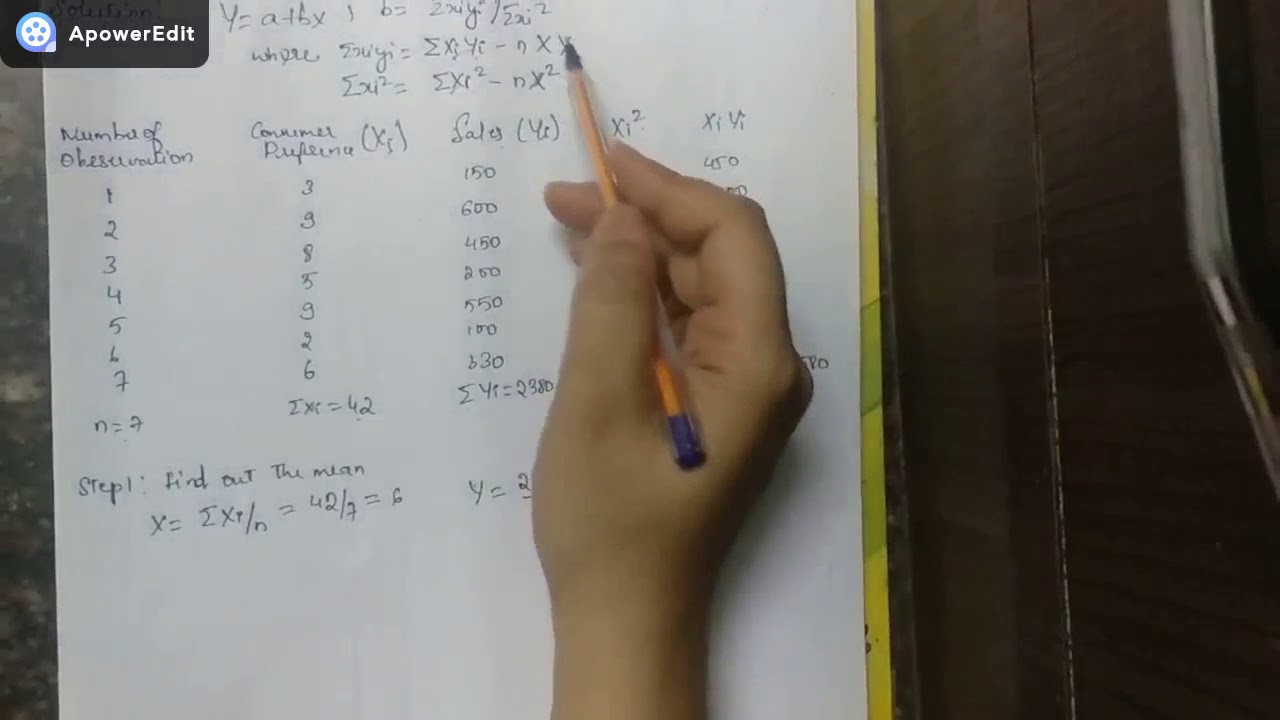 ApowerEdit
Solution:
Y = a+bx , b= Σxiyi/Σxi²
where Σxiyi = ΣXiYi - n X Y
Σxi² = ΣXi² - nX²
Number of Obeservation
Consumer Preference (Xi)
Sales (Yi)
Xi²
XiYi
1 3 150 450
2 9 600
3 8 450
4 5 200
5 9 550
6 2 100
7 6 330
n=7 Σxi = 42 ΣYi = 2380
Step1: Find out The mean
X = ΣXi/n = 42/7 = 6 Y = 2